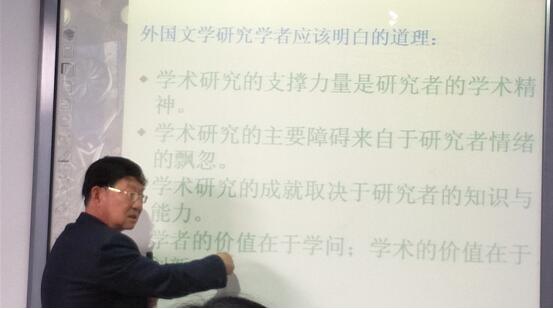 外国文学研究学者应该明白的道理：
学术研究的支撑力量是研究者的学术精
神。
学术研究的主要障碍来自于研究者情绪
的飘忽。
学术研究的成就取决于研究者的知识与
能力。
学者的价值在于学问；学术的价值在于